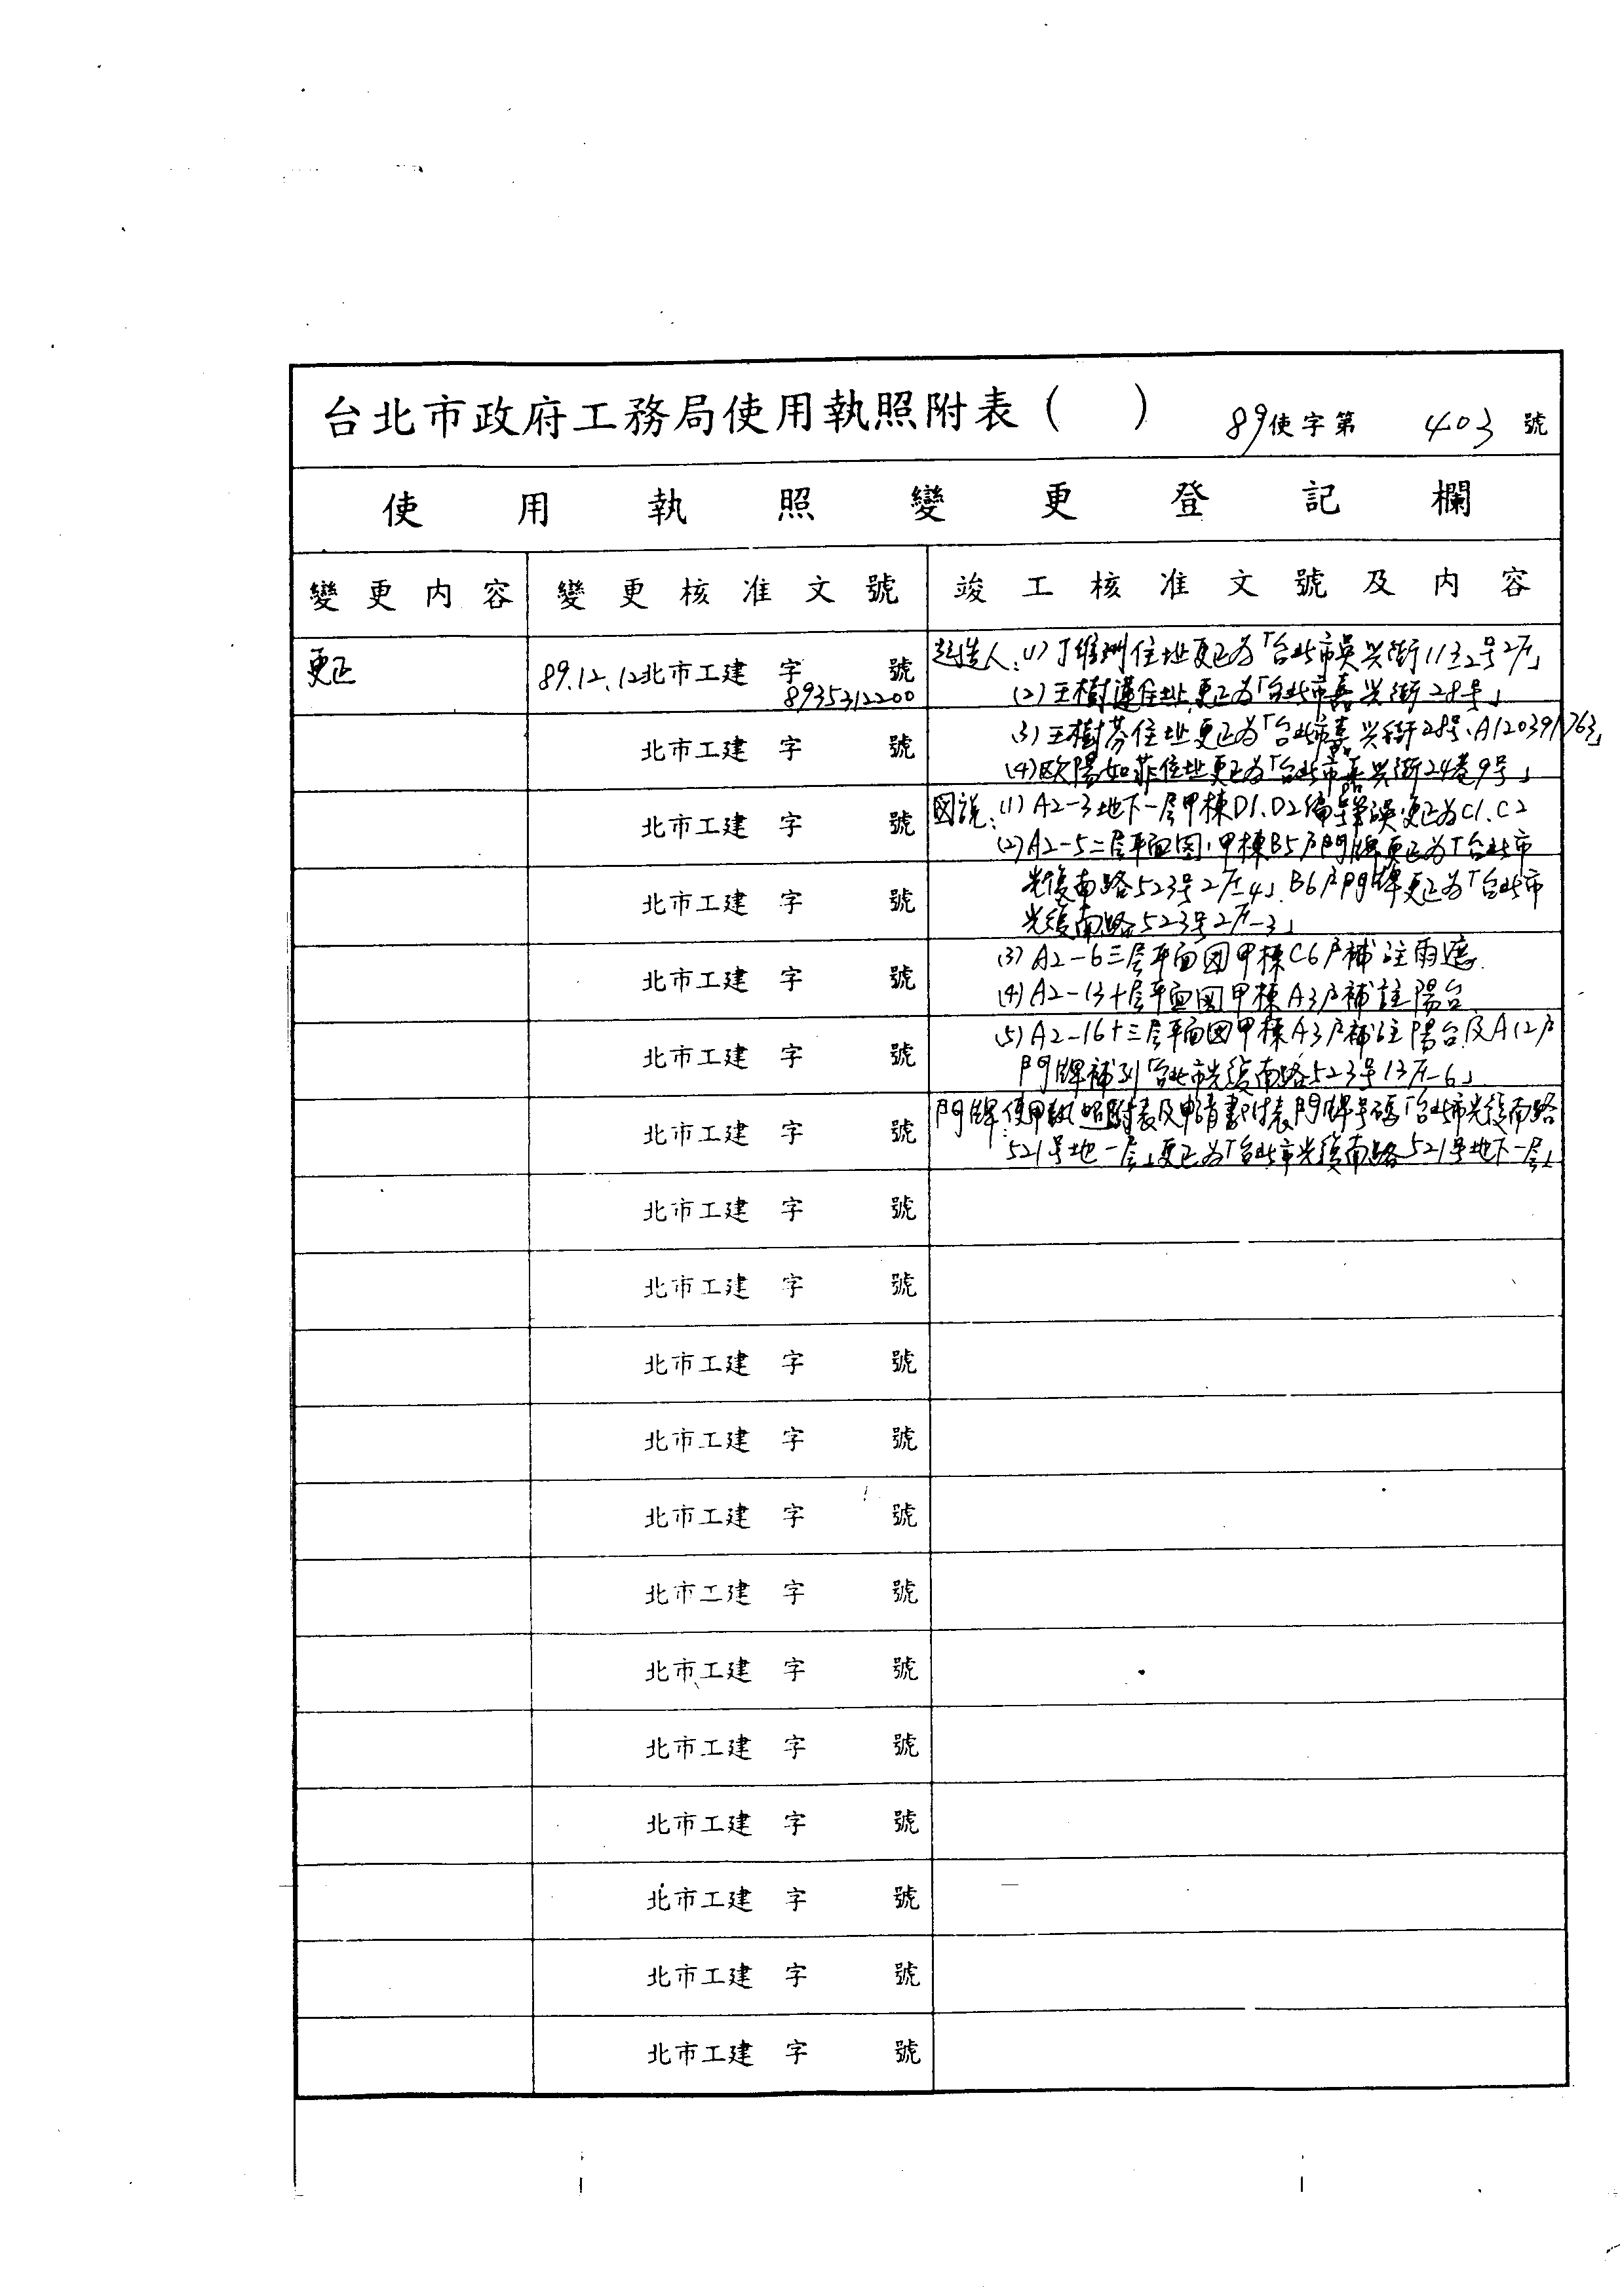 台北市政府工務局使用執照附表（　）　89使字第　403　號
使用執照變更登記欄
變更內容　變更核准文號　竣工核准文號及內容
更正　89.12.12北市工建　字　8935312200　號　起造人：(1)丁維洲住址更正為「台北市吳兴街11
(2)王樹蓮住址更正為「台北市嘉兴街28号」
北市工建　字　號　(3)王樹芬住址更正為「台北市嘉兴街28号、A120391763」
(4)欧陽如菲住址更正為「台北市嘉兴街24巷9号」
北市工建　字　號　図說：(1)A2-3地下一层甲棟D1.D2編号筆誤更正为C1.C2
(2)A2-5二层平面図，甲棟B5户門牌更正为「台北市
北市工建　字　號　光復南路523号2F-4」.B6户門牌更正为「台北市
光復南路523号2F-3」
北市工建　字　號　(3)A2-6三层平面図甲棟C6户補註雨遮.
(4)A2-13十层平面図甲棟A3户補註陽台
北市工建　字　號　(5)A2-16十三层平面図甲棟A3户補註陽台及A12户
門牌補列「台北市光復南路523号13F-6」
北市工建　字　號　門牌：使用執照附表及申請書附表門牌号碼「台北市光復南路
521号地一层」更正为「台北市光復南路521号地下一层」
北市工建　字　號
北市工建　字　號
北市工建　字　號
北市工建　字　號
北市工建　字　號
北市工建　字　號
北市工建　字　號
北市工建　字　號
北市工建　字　號
北市工建　字　號
北市工建　字　號
北市工建　字　號